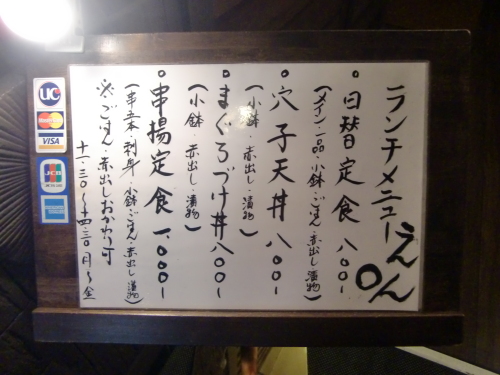 ランチメニュー えん
。日替定食 八〇〇ー
(メイン一品・小鉢・ごはん・赤出し・漬物)
。穴子天丼 八〇〇ー
(小鉢・赤出し・漬物)
。まぐろづけ丼 八〇〇ー
(小鉢・赤出し・漬物)
。串揚定食 一、〇〇〇ー
(串五本・刺身・小鉢・ごはん・赤出し・漬物)
※・ごはん・赤出しおかわり可
十一・三〇〜十四・三〇 月〜金
UC
MasterCard
VISA
JCB